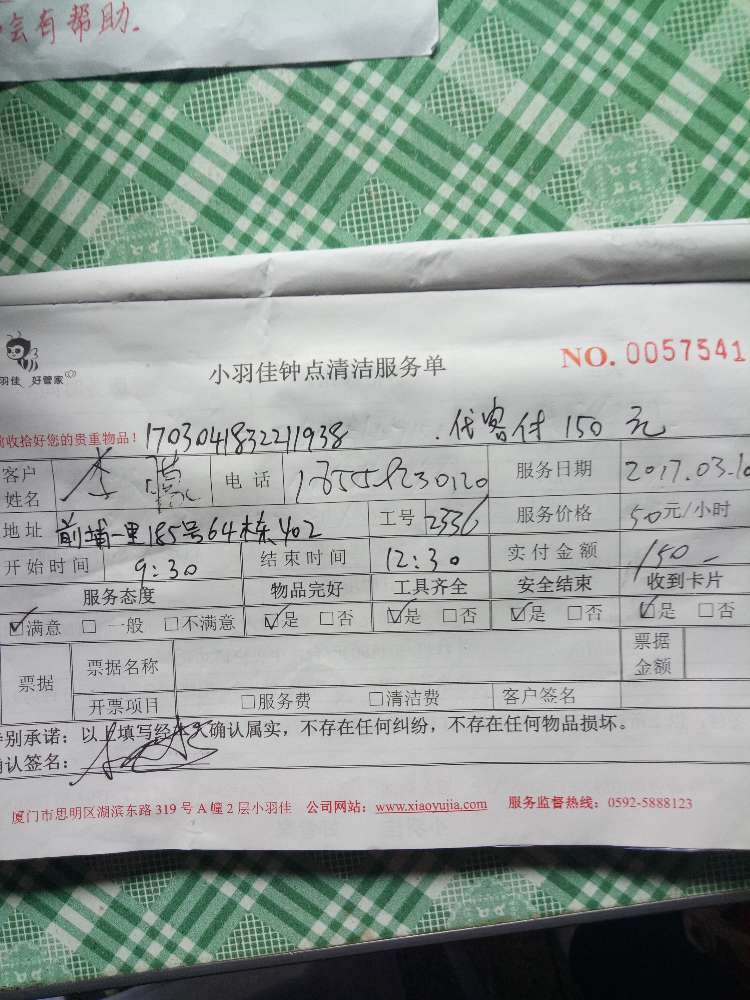 会有帮助.
羽佳 好管家
小羽佳钟点清洁服务单
NO. 0057541
前收拾好您的贵重物品! 1703041832211938 . 代客付 150 元
客户姓名 李 电 话 服务日期 2017.03.10
地址 前埔一里185号64栋402 工号 2336 服务价格 50元/小时
开始时间 9:30 结束时间 12:30 实付金额 150
服务态度 物品完好 工具齐全 安全结束 收到卡片
☑满意 □ 一般 □不满意 ☑是 □否 ☑是 □否 ☑是 □否 ☑是 □否
票据 票据名称 票据金额
开票项目 □服务费 □清洁费 客户签名
特别承诺：以上填写经本人确认属实，不存在任何纠纷，不存在任何物品损坏。
确认签名：
厦门市思明区湖滨东路 319 号 A 幢 2 层小羽佳 公司网站：www.xiaoyujia.com 服务监督热线：0592-5888123